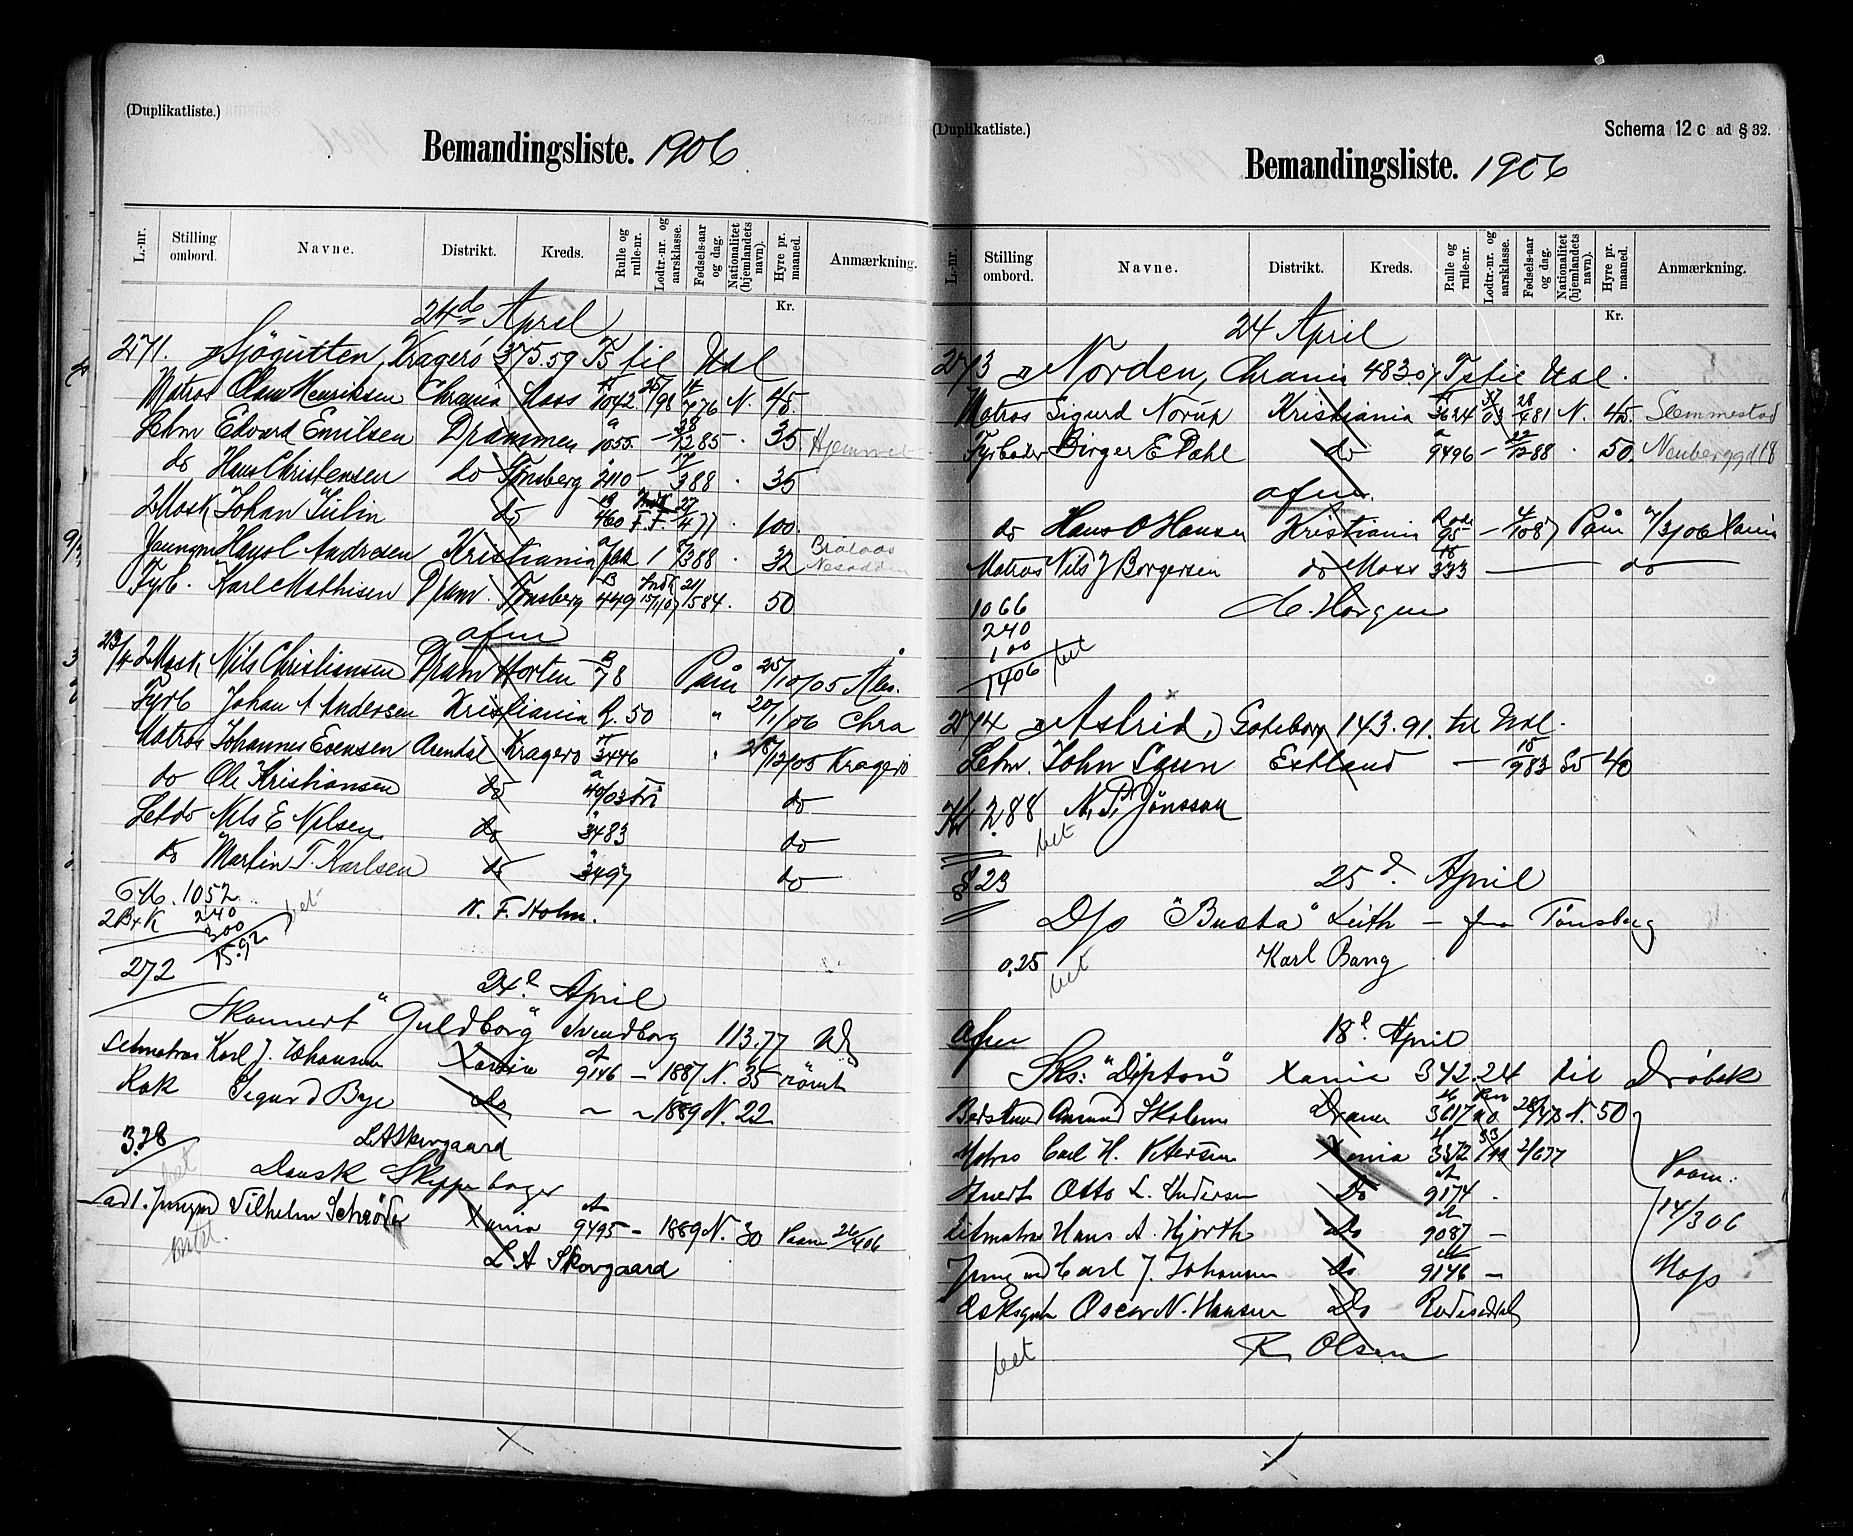 (Duplikatliste.)
Bemandingsliste. 1906
L.-nr. Stilling ombord. Navne. Distrikt. Kreds. Rulle og rulle-nr. Lodtr.-nr. og aarsklasse. Fødsels-aar og dag. Nationalitet (hjemlandets navn). Hyre pr. maaned. Anmærkning.
Kr.
24de April
271. Sjögutten, Kragerö 375.59 Ts til Udl
Matros Olaus Henriksen Chrania Moss 1042 25/98 N. 45
Letm Edvard Emilsen Drammen 1055 — 28/12 85 35 Hjemmet
do Hans Christensen do Tønsberg 2110 — 17/3 88 35
2 Mask Johan Julin do 460 F. F. 27/4 77 100.
Jungm Hans C Andresen Kristiania 1 32 Nesodden
Fyrb. Karl Mathisen Dram. Tønsberg 449 21/1584. 50
afm
23/4 2 Mask Nils Christiansen Dram Horten 78 Paam 25/10/05
Fyrb Johan A Andersen Kristiania R. 50 " 20/11/06 Chra
Matros Johannes Evensen Arendal Kragerö 3446 " 28/12/05 Kragerö
do Ole Kristiansen do 40/03 do
Letdo Nils E Nilsen do 3483 do
do Martin T. Karlsen do 3497 do
T.M. 1052 bet
2B+K 240 N. F. Holm.
300
15.92
272
24d April
Skonnert "Guldborg" Svendborg 113.77 Udl
Letmatros Karl J. Johansen Xania 9146 — 1887 N. 35 römt
Kok Sigurd Bye do — — 1889 N. 22
3.28 L A Skovgaard
bet Dansk Skippe bager
Jungmd Vilhelm Schrøder Xania 9495 — 1889 N. 30 Paam 26/4 06
L A Skovgaard
(Duplikatliste.) Schema 12 c ad § 32.
Bemandingsliste. 1906
L.-nr. Stilling ombord. Navne. Distrikt. Kreds. Rulle og rulle-nr. Lodtr.-nr. og aarsklasse. Fødsels-aar og dag. Nationalitet (hjemlandets navn). Hyre pr. maaned. Anmærkning.
Kr.
24 April
273 Norden, Chrania 483.07 Ts til Udl.
Matros Sigurd Norup Kristiania 3624 37/03 28/4 81 N. 45. Slemmestad
Fyrböder Birger E Dahl do 9496 — 22/12 88 50. Neuberggd 18
afm.
do Hans O Hansen Kristiania 95 — Paam 7/3/06 Xania
Matros Nils J Borgersen do Moss 333 — do
1066 C. Horgen
240
100
1406 bet
274 Astrid, Göteborg 143.91. til Udl.
Letm. John Sgun Estland — 15/9 83 40
Kr 2.88 N. P. Jönsson
bet
823 25d April
D/s "Busta" Leith — fra Tönsberg
0.25 Karl Bang
bet
afm 18d April
Sks: "Dipton" Xania 342.24 til Dröbak
Bedstmd Skolem Dram 3617 N. 50
Matros Carl H. Petersen Xania 3372 2/6 77 Paam:
Otto L. Andersen Do 9174 — 14/3 06
Letmatros Hans A. Hjorth do 9087 — Mos
Jungmd Carl J. Johansen do 9146 —
Dæksgut Oscar N. Hansen Do
bet R. Olsen